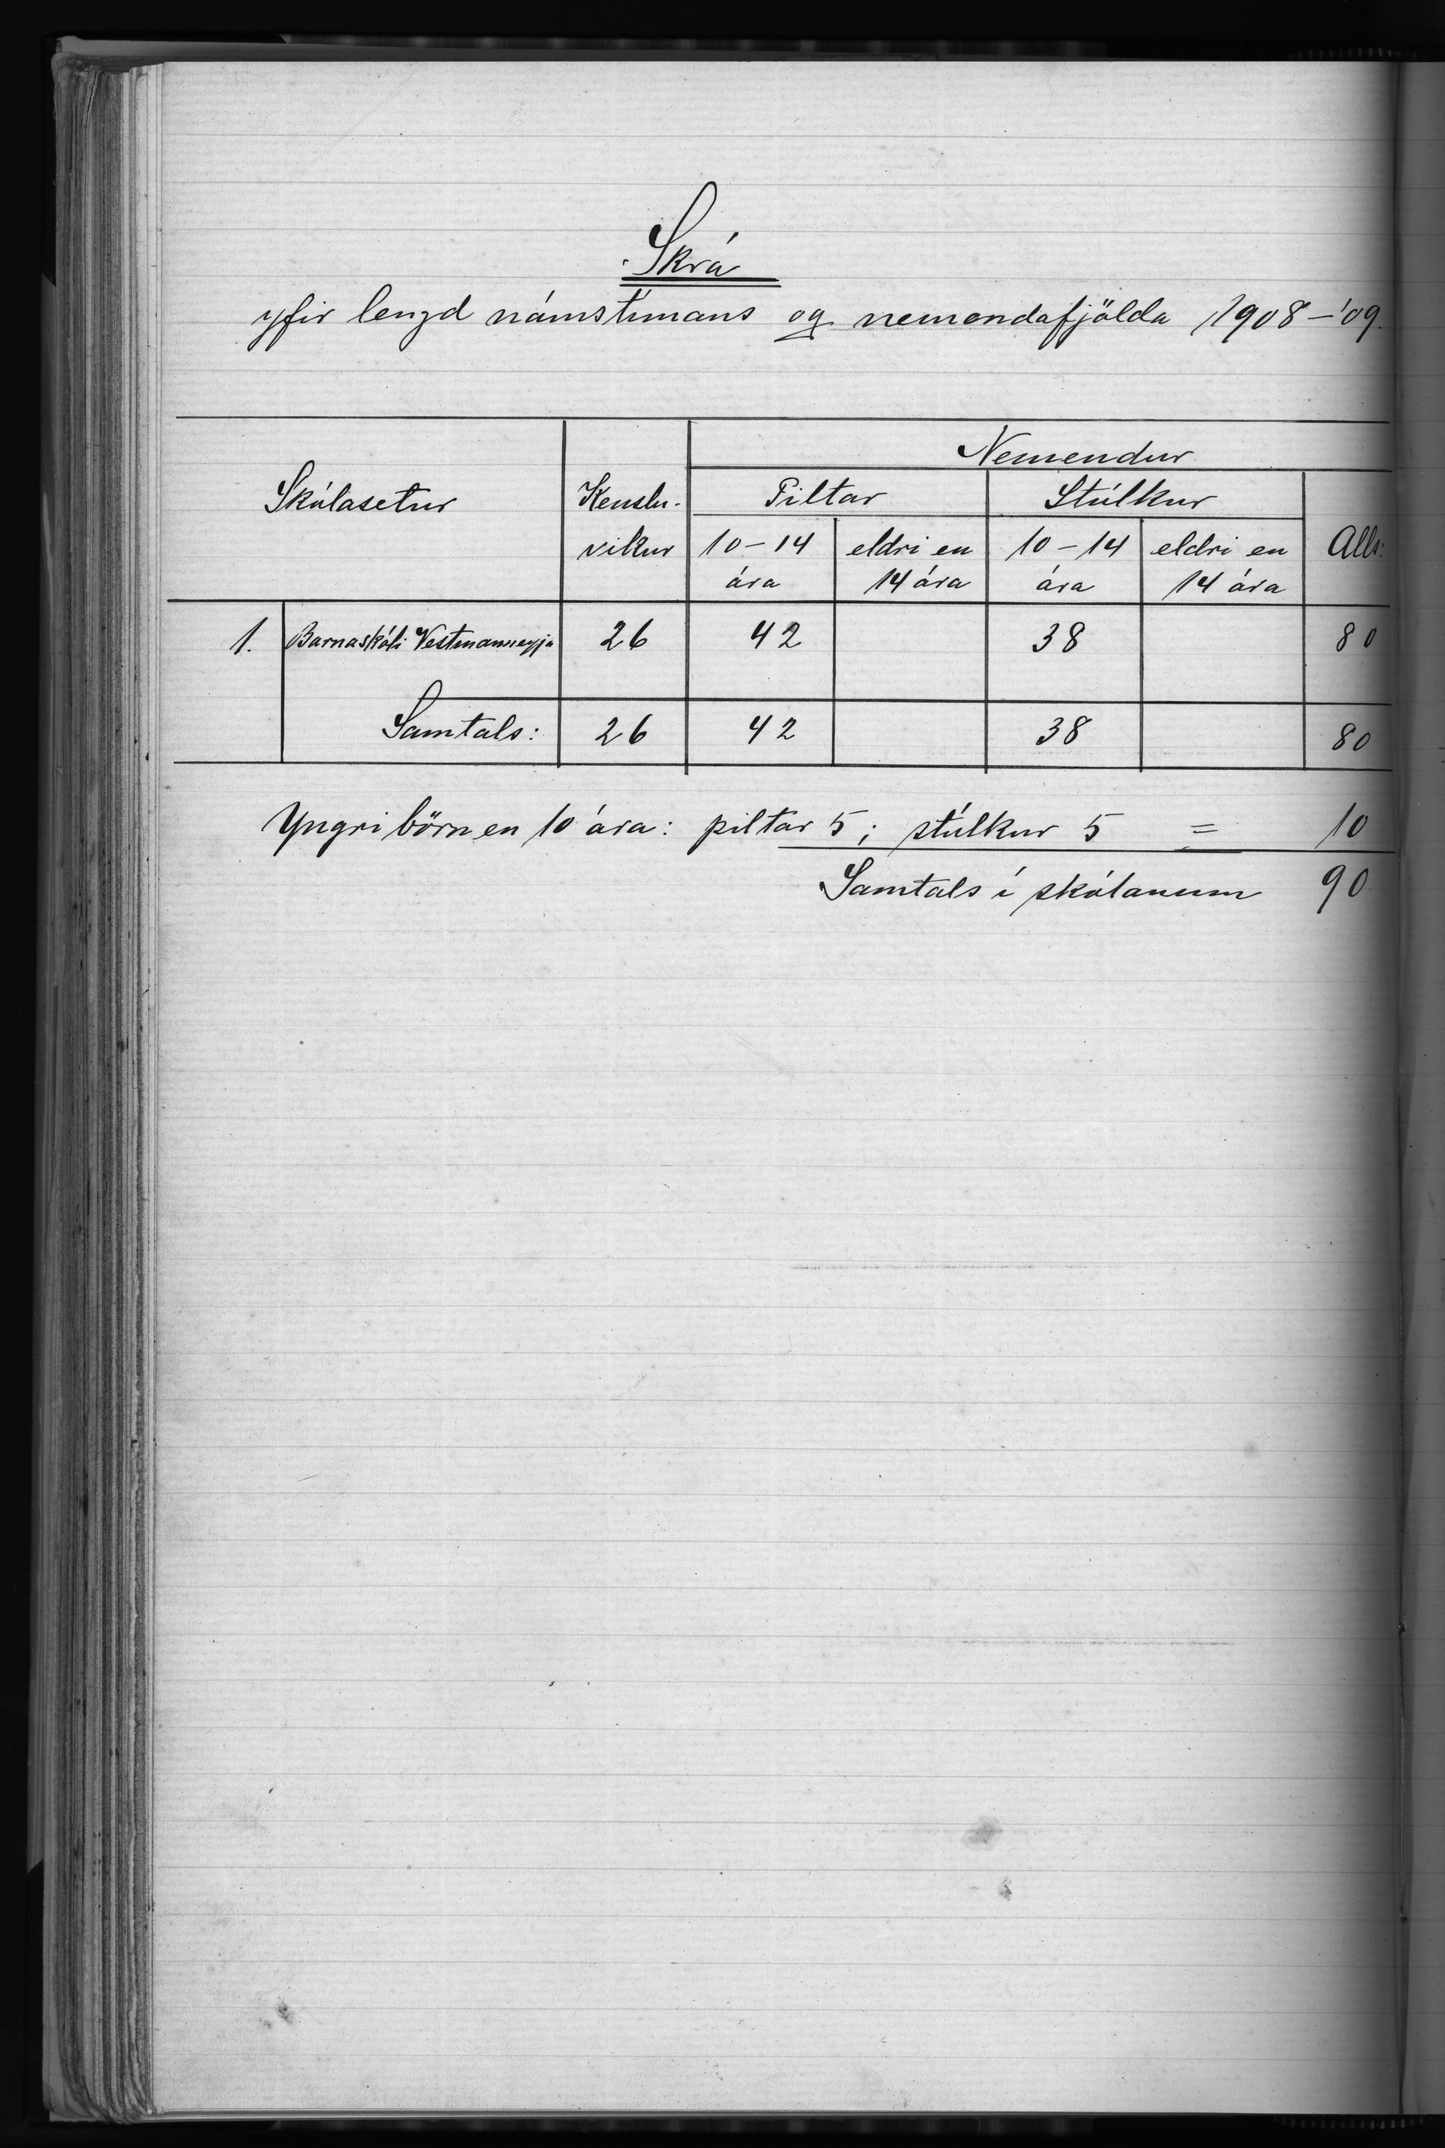 Skrá
yfir lengd námstímans og nemendafjölda 1908–'09.
Nemendur
Skólasetur Kenslu- Piltar Stúlkur
vikur 10–14 eldri en 10–14 eldri en Alls:
ára 14 ára ára 14 ára
1. Barnaskóli Vestmannaeyja 26 42 38 80
Samtals: 26 42 38 80
Yngri börn en 10 ára: piltar 5; stúlkur 5 = 10
Samtals í skólanum 90